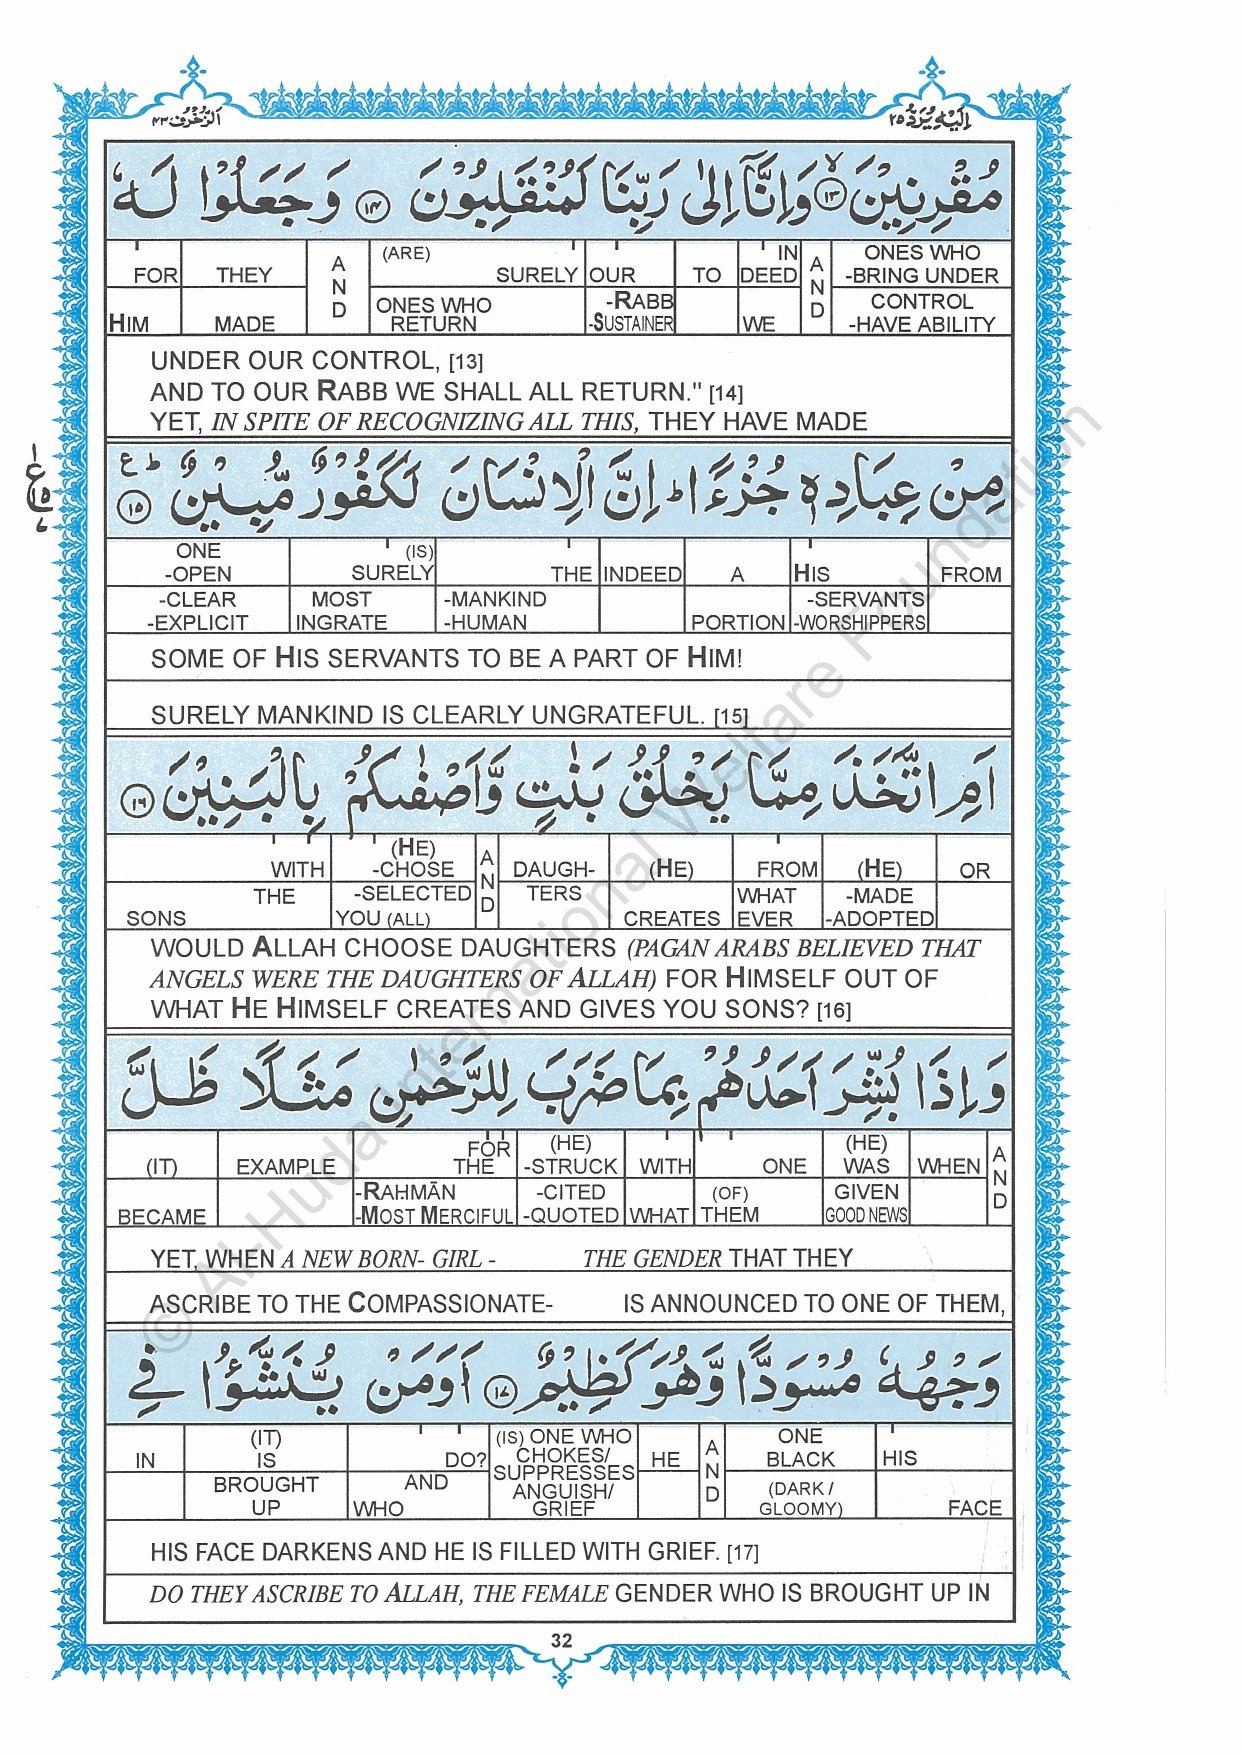 الزخرف ٤٣
اليه يرد ٢٥
مُقْرِنِيْنَ ۙ ١٣ وَاِنَّآ اِلٰى رَبِّنَا لَمُنْقَلِبُوْنَ ١٤ وَجَعَلُوْا لَهٗ
FOR THEY AND (ARE) SURELY OUR TO INDEED AND ONES WHO -BRING UNDER
HIM MADE ONES WHO RETURN -RABB -SUSTAINER WE CONTROL -HAVE ABILITY
UNDER OUR CONTROL, [13]
AND TO OUR RABB WE SHALL ALL RETURN." [14]
YET, IN SPITE OF RECOGNIZING ALL THIS, THEY HAVE MADE
مِنْ عِبَادِهٖ جُزْءًا ؕ اِنَّ الْاِنْسَانَ لَكَفُوْرٌ مُّبِيْنٌ ؕ ع ١٥
ONE -OPEN (IS) SURELY THE INDEED A HIS FROM
-CLEAR -EXPLICIT MOST INGRATE -MANKIND -HUMAN PORTION -SERVANTS -WORSHIPPERS
SOME OF HIS SERVANTS TO BE A PART OF HIM!
SURELY MANKIND IS CLEARLY UNGRATEFUL. [15]
اَمِ اتَّخَذَ مِمَّا يَخْلُقُ بَنٰتٍ وَّاَصْفٰىكُمْ بِالْبَنِيْنَ ١٦
WITH (HE) -CHOSE AND DAUGH- (HE) FROM (HE) OR
THE SONS -SELECTED YOU (ALL) TERS CREATES WHAT EVER -MADE -ADOPTED
WOULD ALLAH CHOOSE DAUGHTERS (PAGAN ARABS BELIEVED THAT
ANGELS WERE THE DAUGHTERS OF ALLAH) FOR HIMSELF OUT OF
WHAT HE HIMSELF CREATES AND GIVES YOU SONS? [16]
وَاِذَا بُشِّرَ اَحَدُهُمْ بِمَا ضَرَبَ لِلرَّحْمٰنِ مَثَلًا ظَلَّ
(IT) EXAMPLE FOR THE (HE) -STRUCK WITH ONE (HE) WAS WHEN AND
BECAME -RAHMĀN -MOST MERCIFUL -CITED -QUOTED WHAT (OF) THEM GIVEN GOOD NEWS
YET, WHEN A NEW BORN- GIRL - THE GENDER THAT THEY
ASCRIBE TO THE COMPASSIONATE- IS ANNOUNCED TO ONE OF THEM,
وَجْهُهٗ مُسْوَدًّا وَّهُوَ كَظِيْمٌ ١٧ اَوَمَنْ يُّنَشَّؤُا فِي
IN (IT) IS DO? (IS) ONE WHO CHOKES/ HE AND ONE BLACK HIS
BROUGHT UP AND WHO SUPPRESSES ANGUISH/ GRIEF (DARK / GLOOMY) FACE
HIS FACE DARKENS AND HE IS FILLED WITH GRIEF. [17]
DO THEY ASCRIBE TO ALLAH, THE FEMALE GENDER WHO IS BROUGHT UP IN
32
© Al-Huda International Welfare Foundation